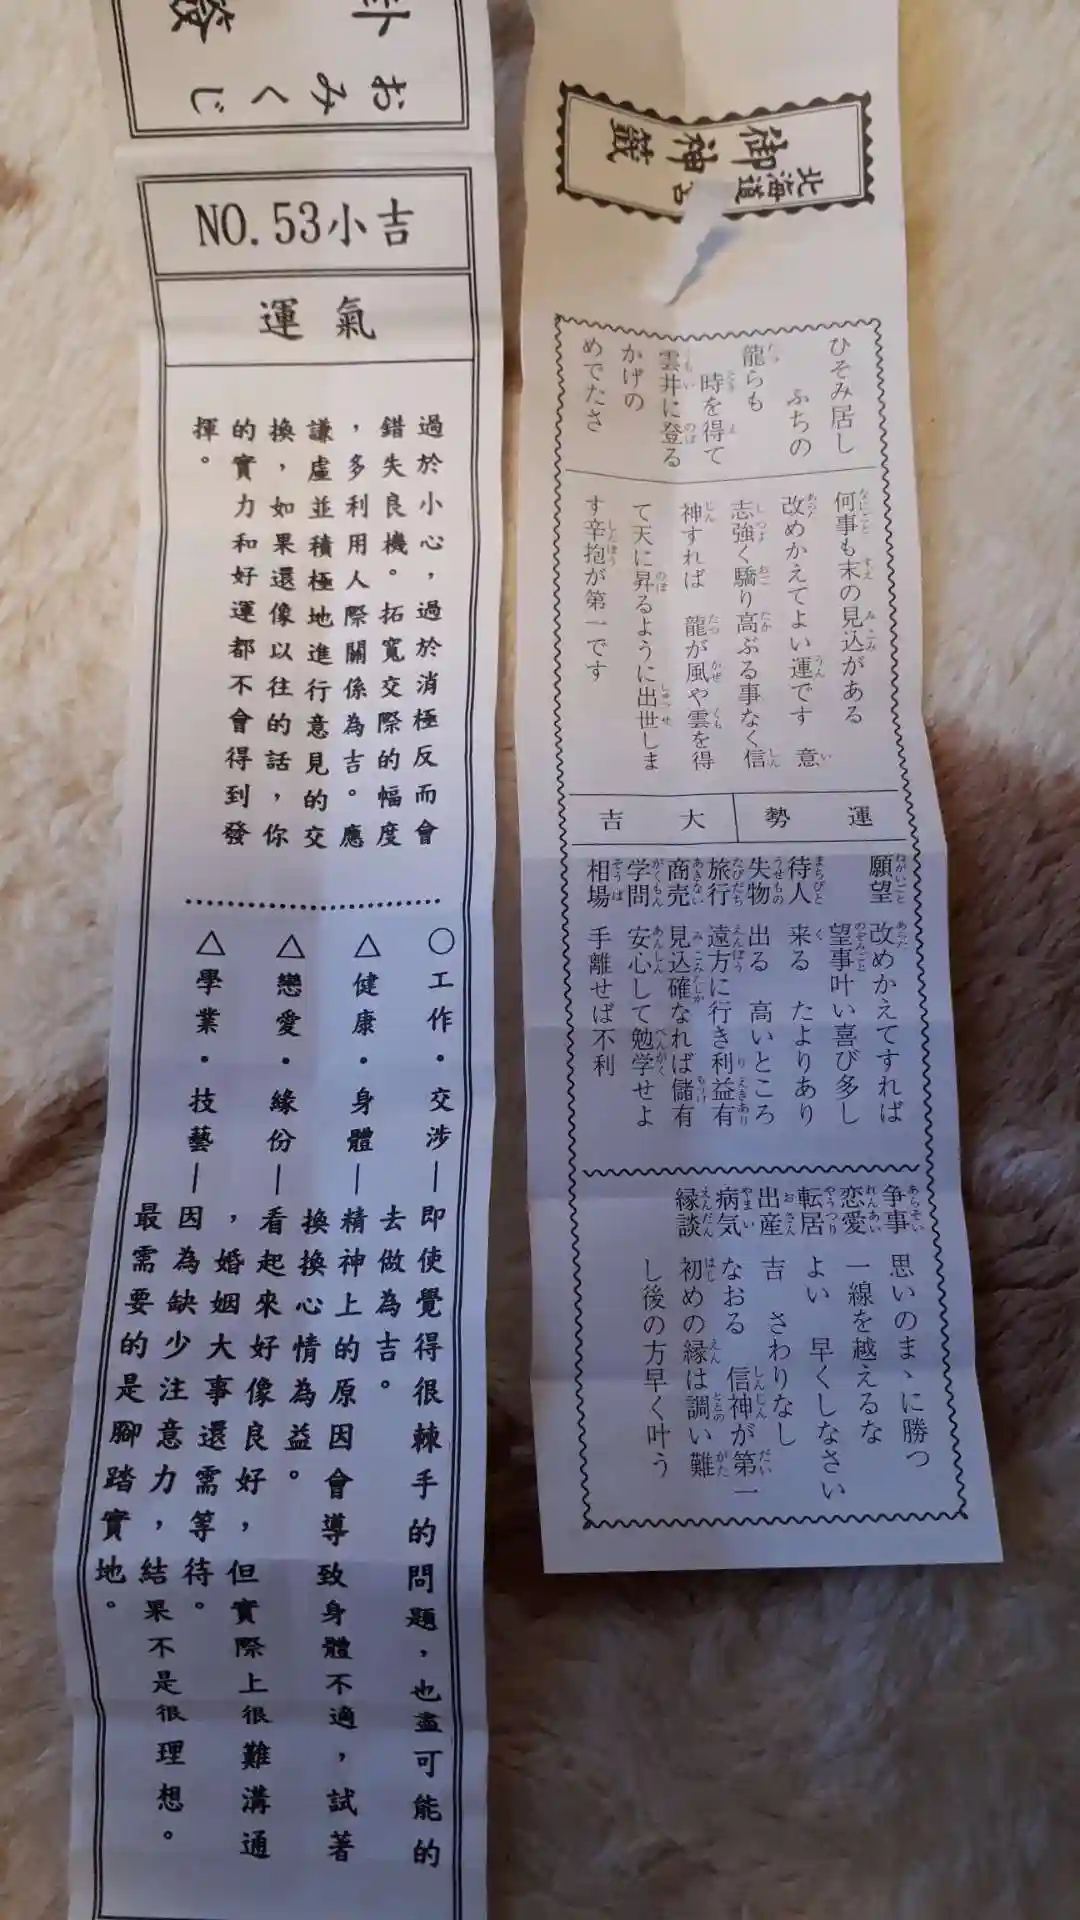 おみくじ
NO.53小吉
運氣
過於小心，過於消極反而會
錯失良機。拓寬交際的幅度
，多利用人際關係為吉。應
謙虛並積極地進行意見的交
換，如果還像以往的話，你
的實力和好運都不會得到發
揮。
○工作・交涉—即使覺得很棘手的問題，也盡可能的
去做為吉。
△健康・身體—精神上的原因會導致身體不適，試著
換換心情為益。
△戀愛・緣份—看起來好像良好，但實際上很難溝通
，婚姻大事還需等待。
△學業・技藝—因為缺少注意力，結果不是很理想。
最需要的是腳踏實地。
北海道
御神籤
ひそみ居し
ふちの
龍らも
時を得て
雲井に登る
かげの
めでたさ
何事も末の見込がある
改めかえてよい運です　意
志強く驕り高ぶる事なく信
神すれば　龍が風や雲を得
て天に昇るように出世しま
す辛抱が第一です
運勢　大吉
願望　改めかえてすれば
望事叶い喜び多し
待人　来る　たよりあり
失物　出る　高いところ
旅行　遠方に行き利益有
商売　見込確なれば儲有
学問　安心して勉学せよ
相場　手離せば不利
争事　思いのまゝに勝つ
恋愛　一線を越えるな
転居　よい　早くしなさい
出産　吉　さわりなし
病気　なおる　信神が第一
縁談　初めの縁は調い難
し後の方早く叶う